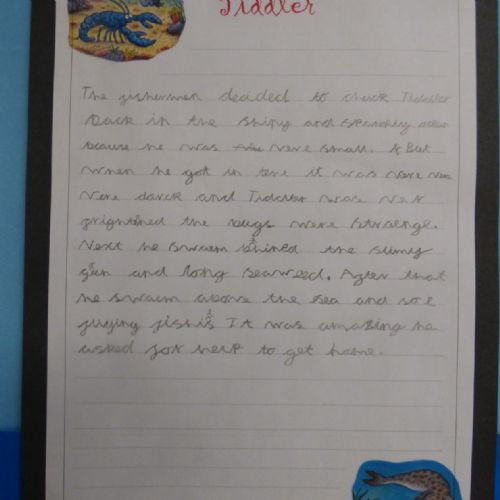 Tiddler
The fishermen decided to chuck Tiddler
back in the shiny and sparkly ocean
becaue he was vere small. But
when he got in tere it was vere
vere darck and Tiddler was ver
frightend the bugs were straenge.
Next he swam bhined the slimy
gren and long seaweed. After that
he swam above the sea and so e
fliying fishis It was amazing he
asked for help to get home.